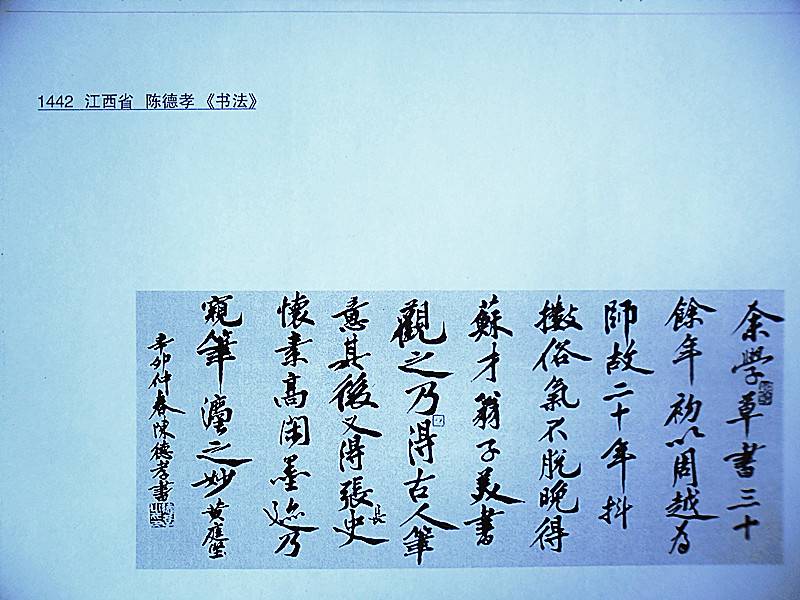 1442 江西省 陈德孝《书法》
余學草書三十
餘年初以周越為
師故二十年抖
擻俗氣不脫晚得
蘇才翁子美書
觀之乃得古人筆
意其後又得張長史
懷素高閑墨迹乃
窺筆灋之妙 黄庭堅
辛卯仲春陳德孝書